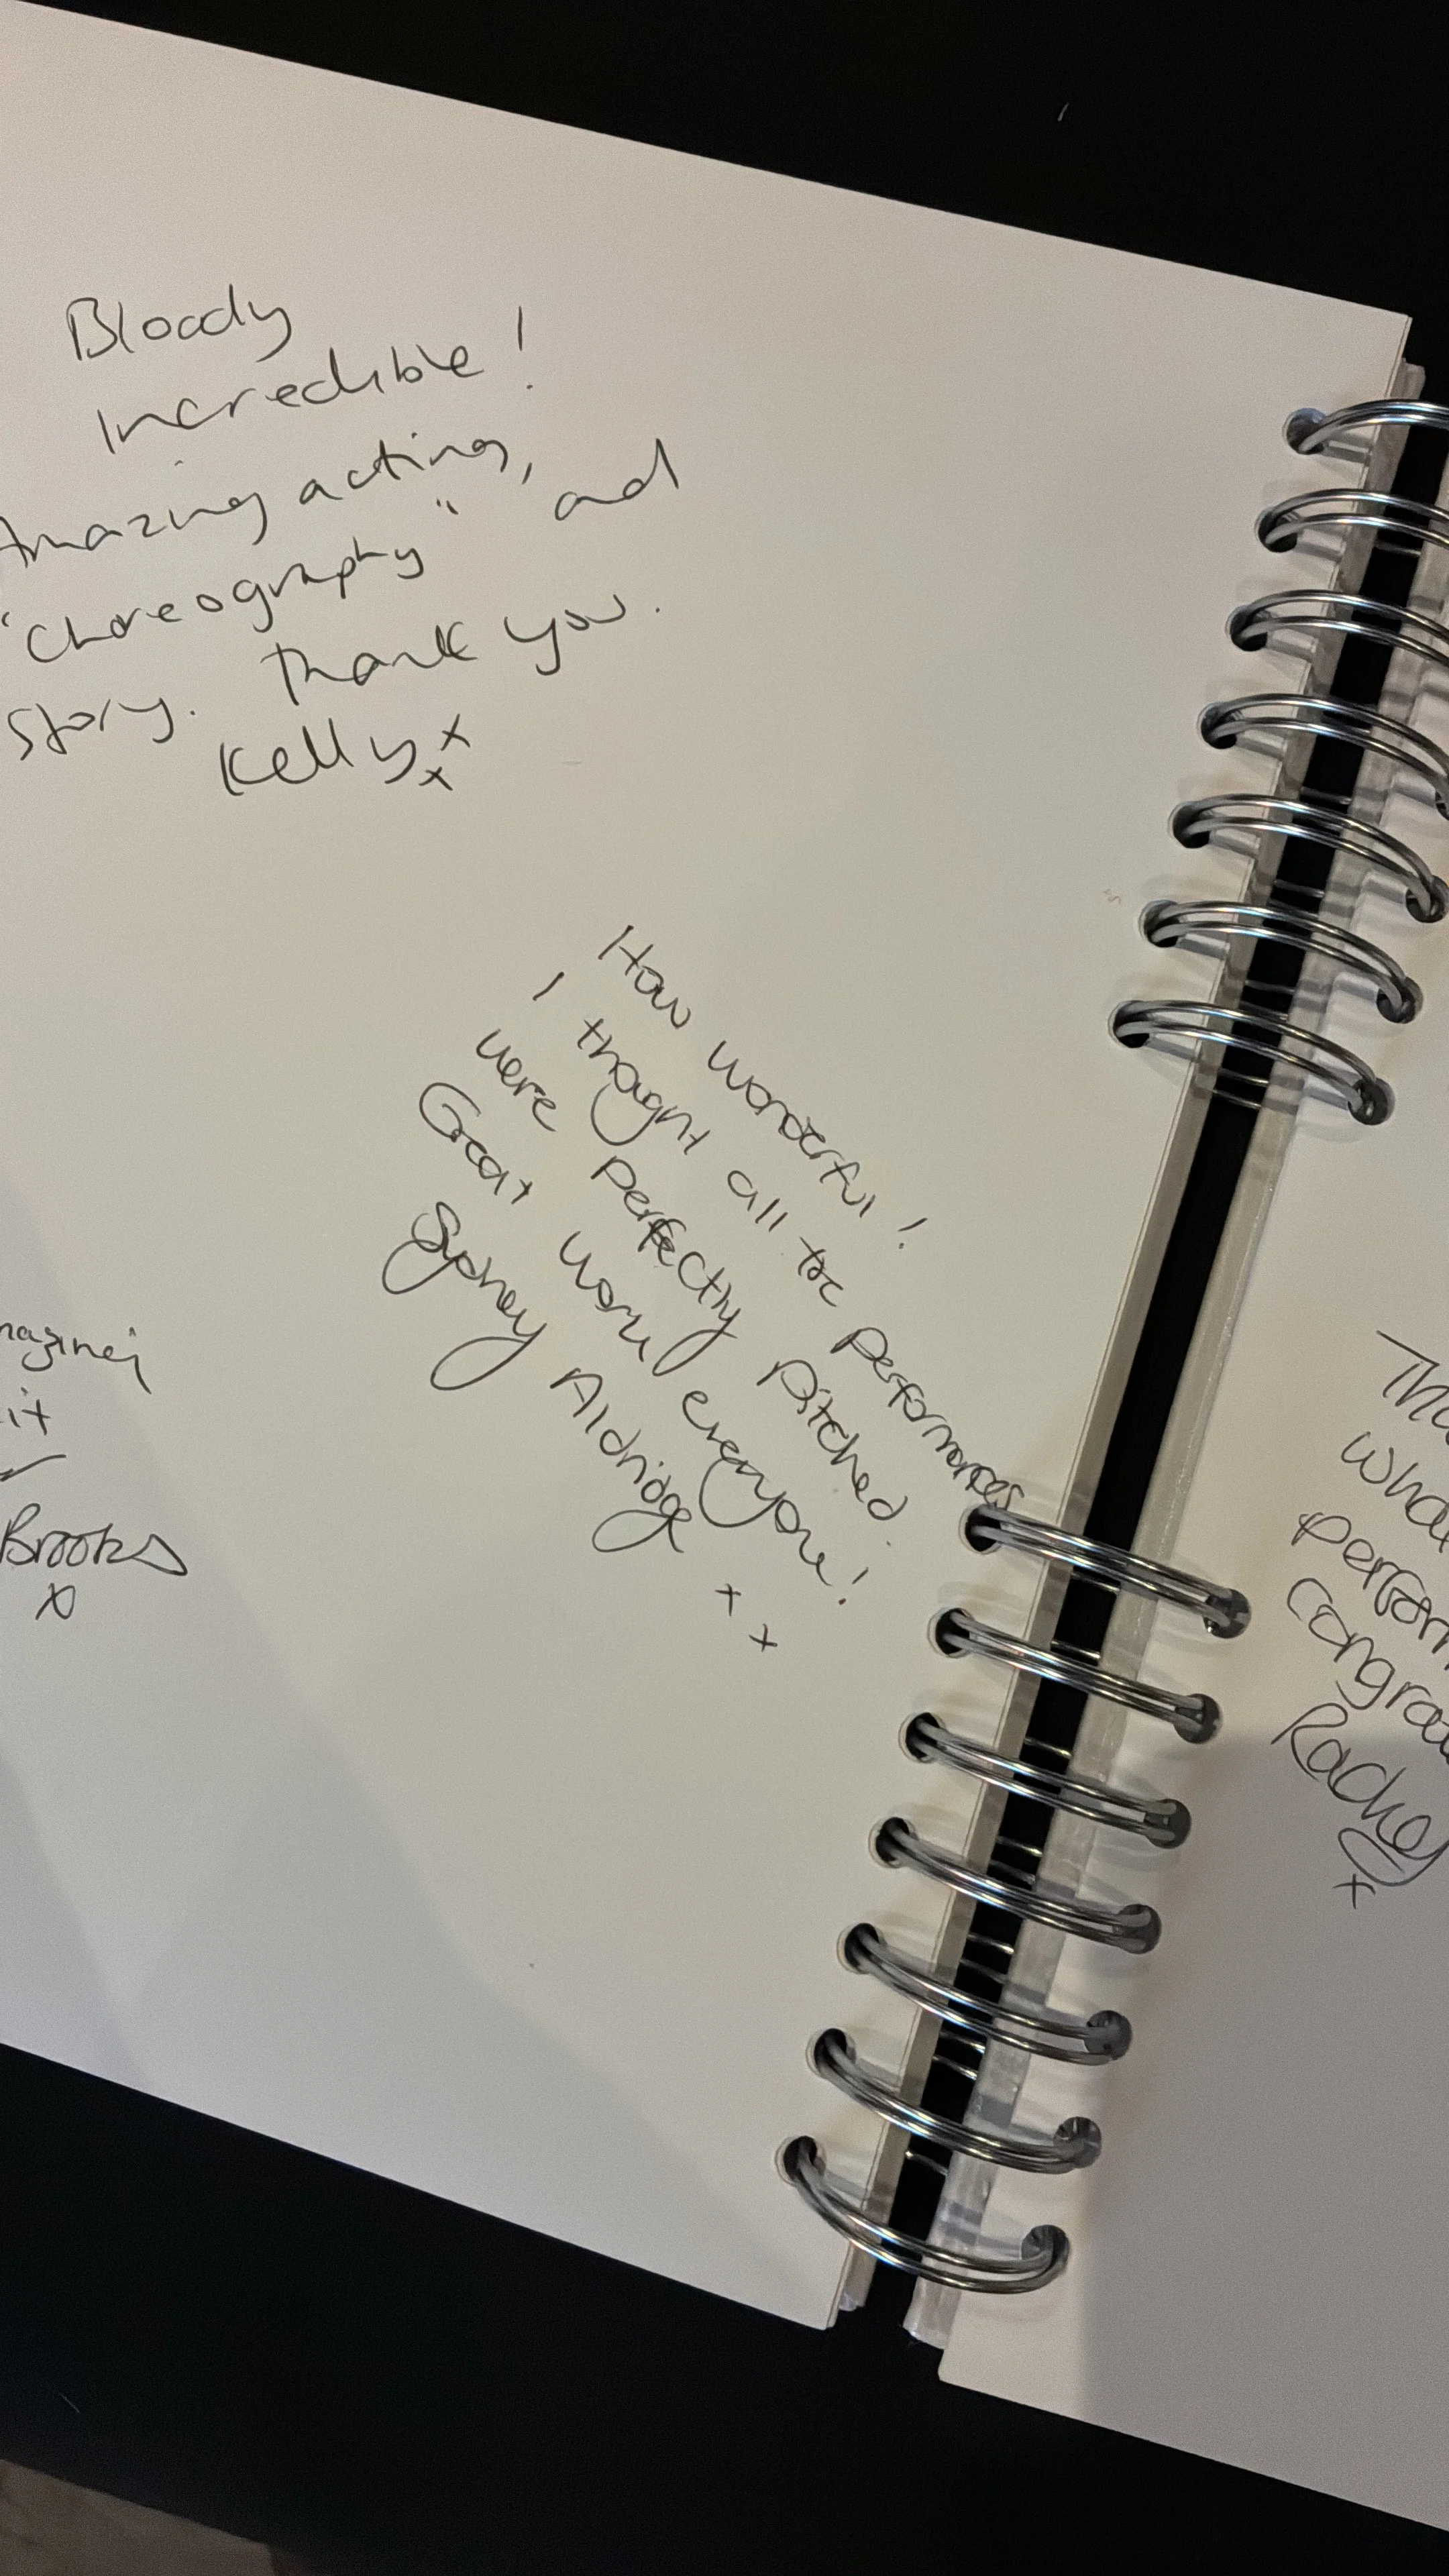 Bloody
Incredible!
Amazing acting,
"Choreography" and
story. Thank you.
Kelly x
x
How wonderful!
I thought all the performances
were perfectly pitched.
Great work everyone!
Sydney Aldridge
x x
it
Brooks
x
Rachel
x